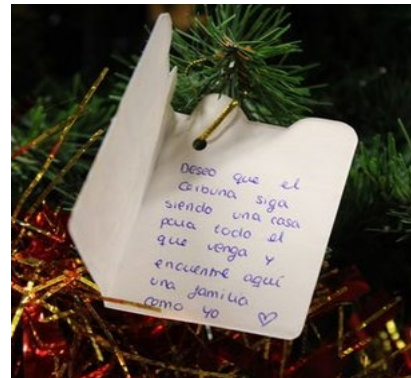 Deseo que el
Cerbuna siga
siendo una casa
para todo el
que venga y
encuentre aquí
una familia
como yo ♡